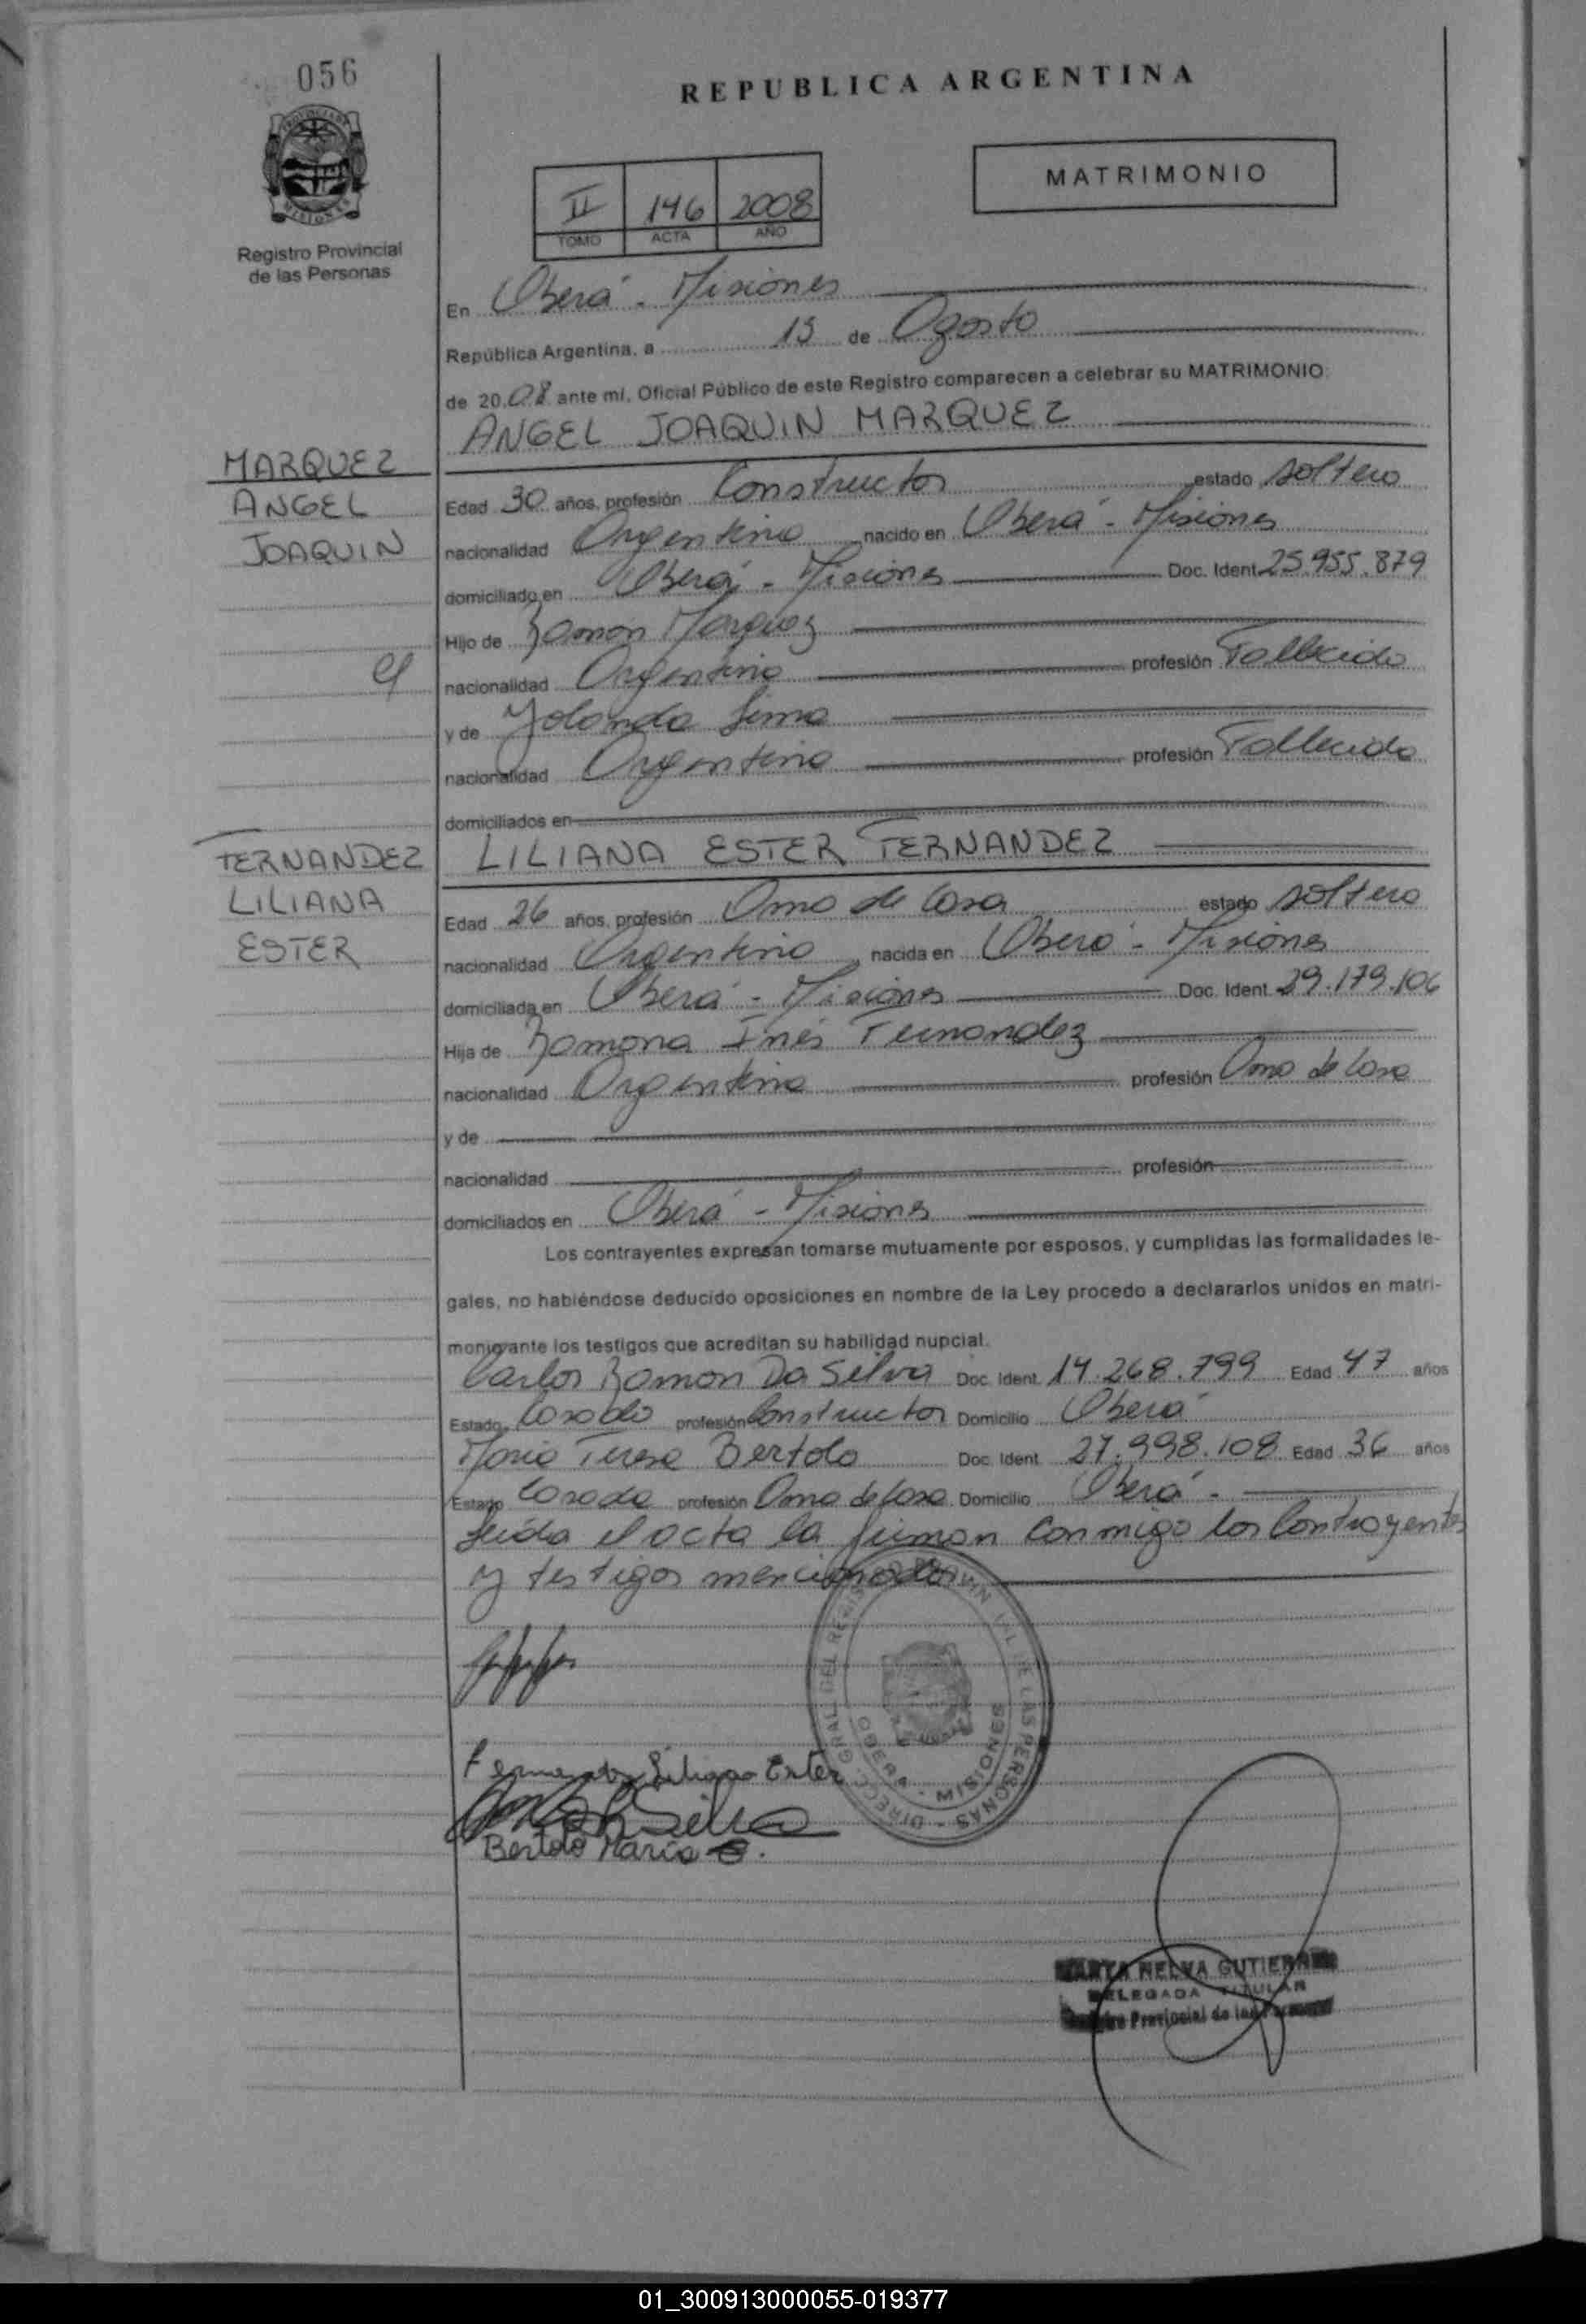 056
REPUBLICA ARGENTINA
PROVINCIA DE
MISIONES
Registro Provincial
de las Personas
MATRIMONIO
II 146 2008
TOMO ACTA AÑO
En Oberá - Misiones
República Argentina, a 15 de Agosto
de 20 08 ante mi, Oficial Público de este Registro comparecen a celebrar su MATRIMONIO:
ANGEL JOAQUIN MARQUEZ
MARQUEZ
ANGEL
JOAQUIN
Edad 30 años, profesión Constructor estado soltero
nacionalidad Argentina nacido en Oberá - Misiones
domiciliado en Oberá - Misiones Doc. Ident. 25.955.879
Hijo de Ramon Marquez
nacionalidad Argentina profesión Fallecido
y de Yolanda Lima
nacionalidad Argentina profesión Fallecida
domiciliados en
LILIANA ESTER FERNANDEZ
FERNANDEZ
LILIANA
ESTER
Edad 26 años, profesión Ama de Casa estado soltera
nacionalidad Argentina nacida en Oberá - Misiones
domiciliada en Oberá - Misiones Doc. Ident. 29.179.106
Hija de Ramona Inés Fernandez
nacionalidad Argentina profesión Ama de Casa
y de
nacionalidad profesión
domiciliados en Oberá - Misiones
Los contrayentes expresan tomarse mutuamente por esposos, y cumplidas las formalidades le-
gales, no habiéndose deducido oposiciones en nombre de la Ley procedo a declararlos unidos en matri-
monio ante los testigos que acreditan su habilidad nupcial.
Carlos Ramon Da Silva Doc. Ident. 14.268.799 Edad 47 años
Estado Casado profesión Constructor Domicilio Oberá
Maria Teresa Bertolo Doc. Ident. 27.998.108 Edad 36 años
Estado Casada profesión Ama de Casa Domicilio Oberá -
Leida el acta la firman conmigo los Contrayentes
y testigos mencionados
DIRECC. GRAL. DEL REGISTRO PROVINCIAL DE LAS PERSONAS
OBERA - MISIONES
Fernandez Liliana Ester
Da Silva
Bertolo Maria
MARTA NELVA GUTIERREZ
DELEGADA TITULAR
Registro Provincial de las Personas
01_300913000055-019377